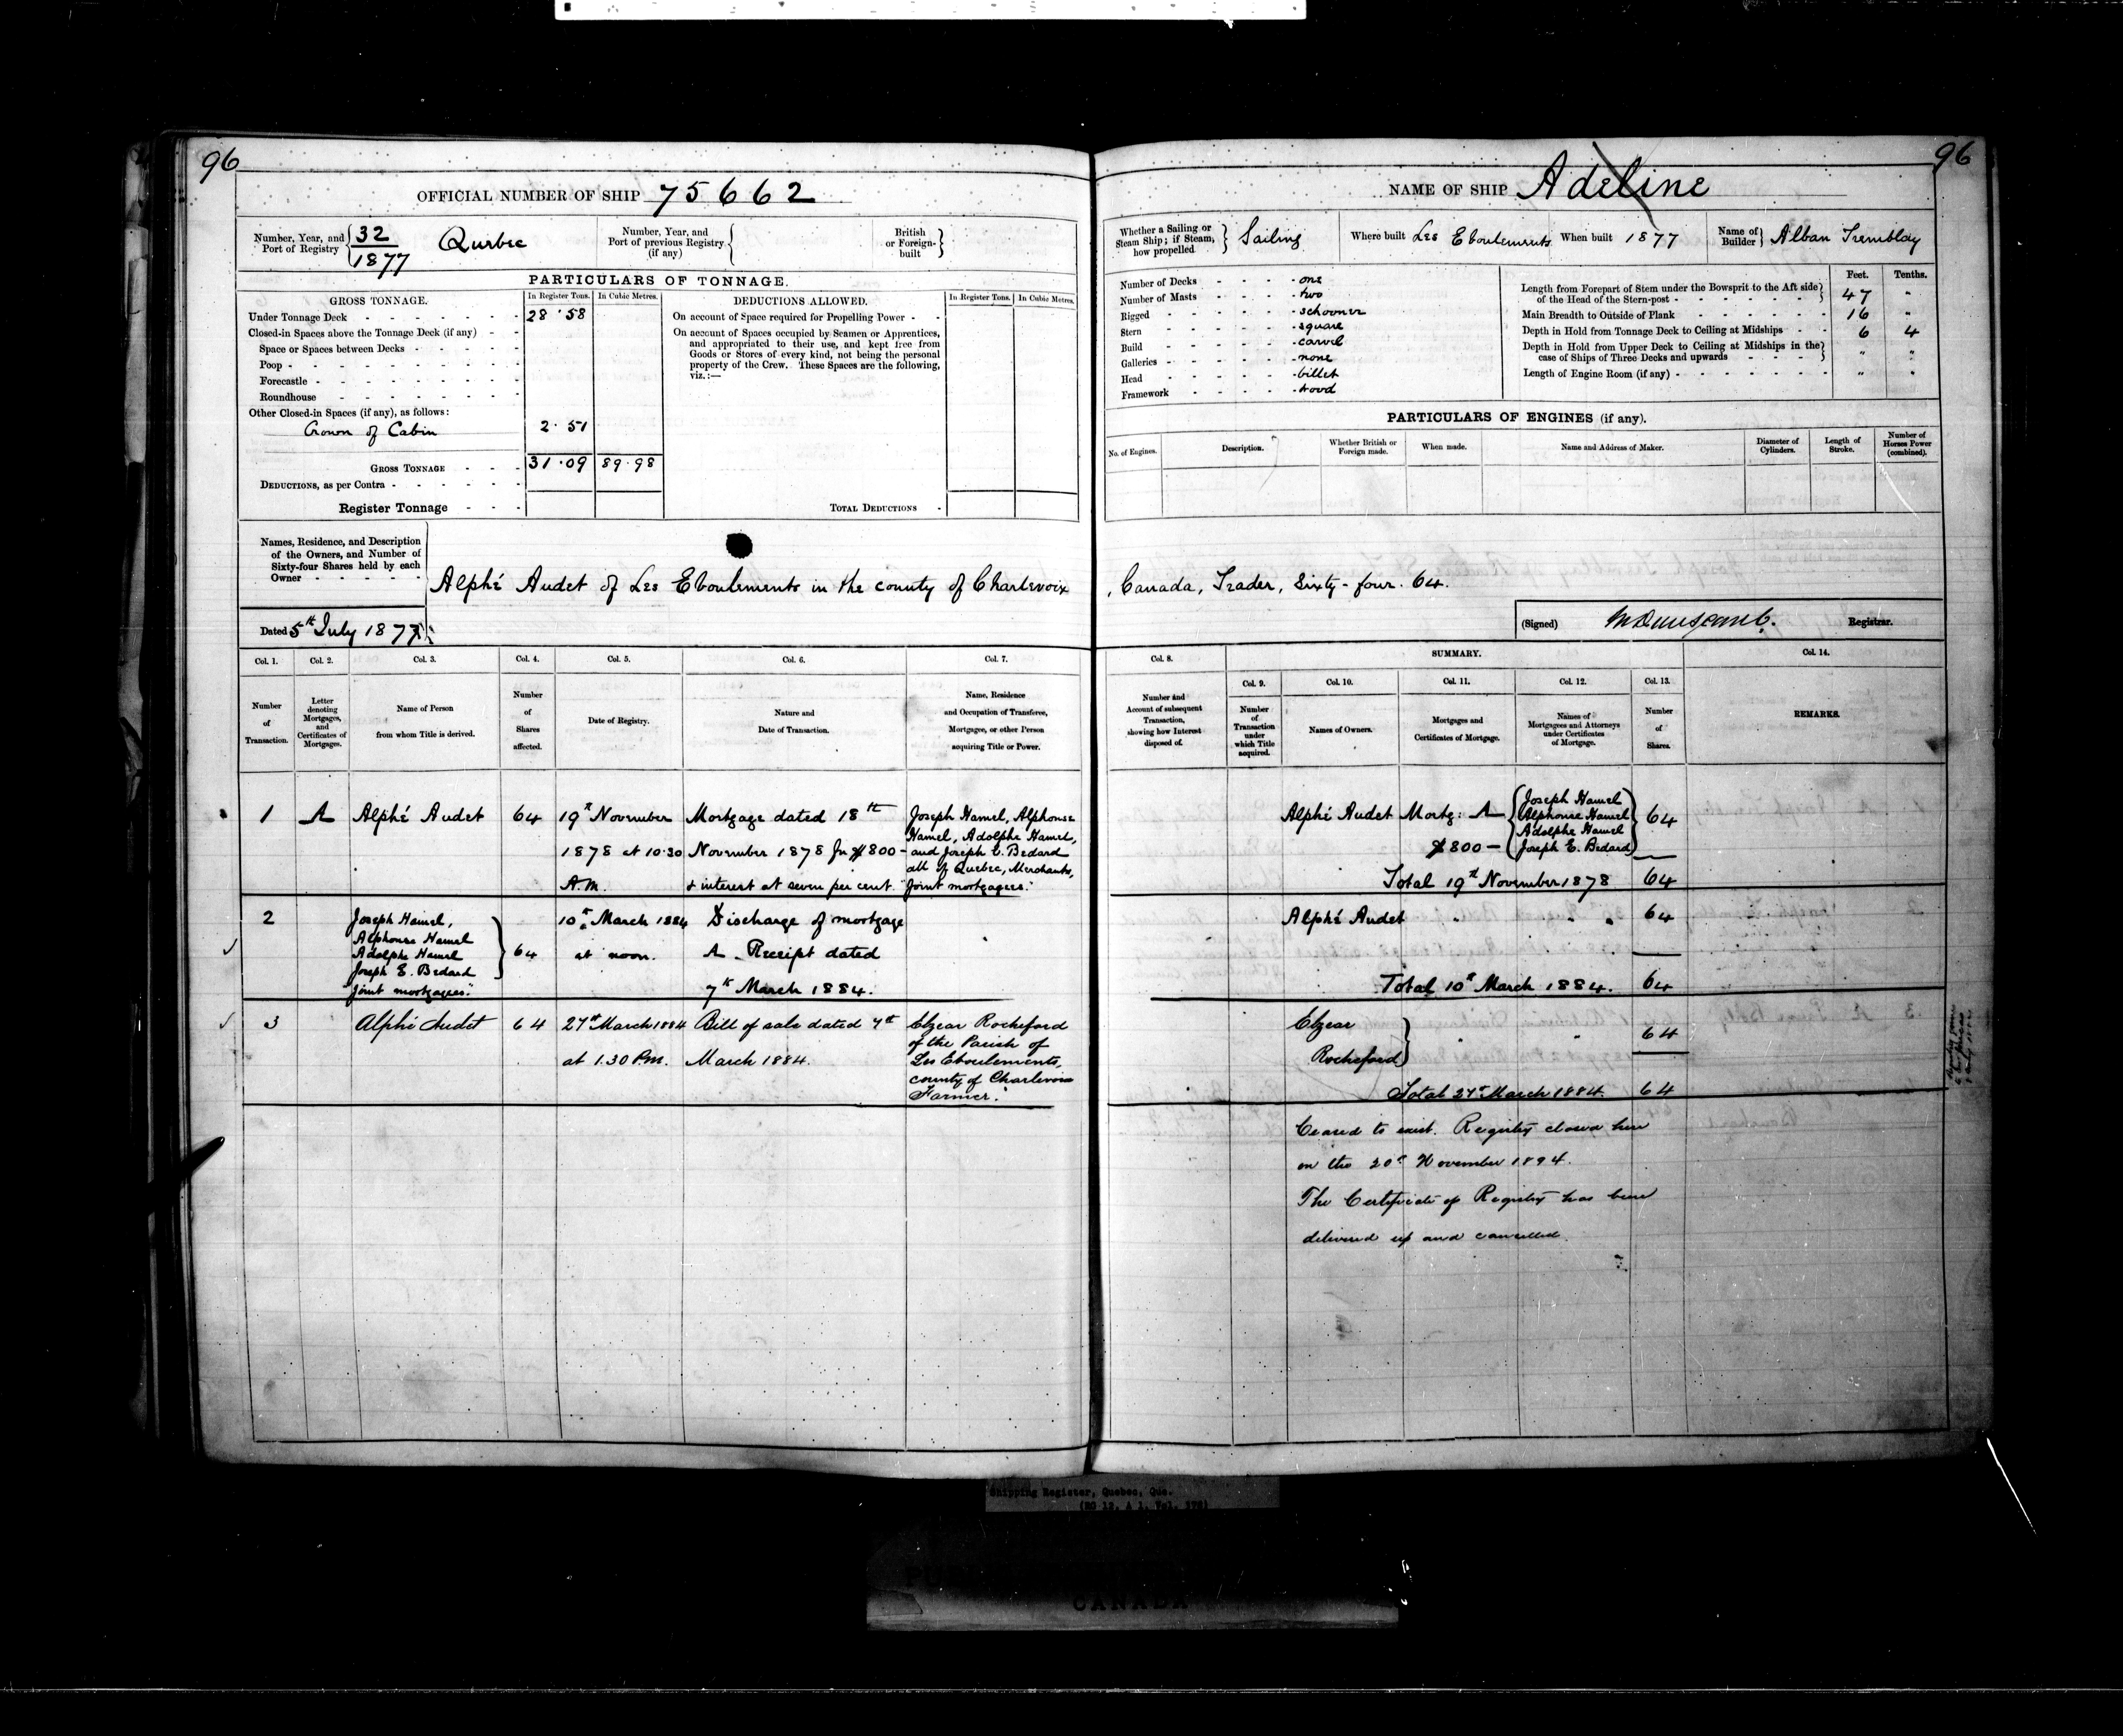 96
OFFICIAL NUMBER OF SHIP 75662
Number, Year, and Port of Registry 32/1877 Quebec
Number, Year, and Port of previous Registry (if any)
British or Foreign-built
PARTICULARS OF TONNAGE.
GROSS TONNAGE.
In Register Tons.
In Cubic Metres.
DEDUCTIONS ALLOWED.
In Register Tons.
In Cubic Metres.
Under Tonnage Deck 28.58
Closed-in Spaces above the Tonnage Deck (if any)
Space or Spaces between Decks
Poop
Forecastle
Roundhouse
Other Closed-in Spaces (if any), as follows:
Crown of Cabin 2.51
GROSS TONNAGE 31.09 89.98
DEDUCTIONS, as per Contra
Register Tonnage
On account of Space required for Propelling Power
On account of Spaces occupied by Seamen or Apprentices,
and appropriated to their use, and kept free from
Goods or Stores of every kind, not being the personal
property of the Crew. These Spaces are the following,
viz.:—
TOTAL DEDUCTIONS
Names, Residence, and Description
of the Owners, and Number of
Sixty-four Shares held by each
Owner
Alphé Audet of Les Eboulements in the county of Charlevoix
Dated 5th July 1877
Col. 1.
Number of Transaction.
Col. 2.
Letter denoting Mortgages, and Certificates of Mortgages.
Col. 3.
Name of Person from whom Title is derived.
Col. 4.
Number of Shares affected.
Col. 5.
Date of Registry.
Col. 6.
Nature and Date of Transaction.
Col. 7.
Name, Residence and Occupation of Transferee, Mortgagee, or other Person acquiring Title or Power.
1 A Alphé Audet 64
19th November
1878 at 10.30
A.m.
Mortgage dated 18th
November 1878 for $800 -
& interest at seven per cent.
Joseph Hamel, Alphonse
Hamel, Adolphe Hamel,
and Joseph E. Bedard
all of Quebec, Merchants,
"Joint mortgagees."
2
Joseph Hamel,
Alphonse Hamel
Adolphe Hamel
Joseph E. Bedard
"Joint mortgagees."
64
10th March 1884
at noon.
Discharge of mortgage
A. Receipt dated
7th March 1884.
3 Alphé Audet 64
27th March 1884
at 1.30 P.m.
Bill of sale dated 7th
March 1884.
Elzear Rocheford
of the Parish of
Les Eboulements,
county of Charlevoix
Farmer.
96
NAME OF SHIP Adeline
Whether a Sailing or Steam Ship; if Steam, how propelled Sailing
Where built Les Eboulements
When built 1877
Name of Builder Alban Tremblay
Number of Decks one
Number of Masts two
Rigged schooner
Stern square
Build carvel
Galleries none
Head billet
Framework wood
Feet. Tenths.
Length from Forepart of Stem under the Bowsprit to the Aft side
of the Head of the Stern-post 47 "
Main Breadth to Outside of Plank 16 "
Depth in Hold from Tonnage Deck to Ceiling at Midships 6 4
Depth in Hold from Upper Deck to Ceiling at Midships in the
case of Ships of Three Decks and upwards " "
Length of Engine Room (if any) " "
PARTICULARS OF ENGINES (if any).
No. of Engines.
Description.
Whether British or Foreign made.
When made.
Name and Address of Maker.
Diameter of Cylinders.
Length of Stroke.
Number of Horses Power (combined).
, Canada, Trader, Sixty-four. 64.
(Signed) Registrar.
Col. 8.
Number and Account of subsequent Transaction, showing how Interest disposed of.
SUMMARY.
Col. 9.
Number of Transaction under which Title acquired.
Col. 10.
Names of Owners.
Col. 11.
Mortgages and Certificates of Mortgage.
Col. 12.
Names of Mortgagees and Attorneys under Certificates of Mortgage.
Col. 13.
Number of Shares.
Col. 14.
REMARKS.
Alphé Audet
Mortg: A
$800 -
Joseph Hamel
Alphonse Hamel
Adolphe Hamel
Joseph E. Bedard
64
Total 19th November 1878 64
Alphé Audet " " " 64
Total 10th March 1884. 64
Elzear
Rocheford
" " 64
Total 27th March 1884. 64
Ceased to exist. Registry closed here
on the 20th November 1894.
The Certificate of Registry has been
delivered up and cancelled.
Shipping Register, Quebec, Que.
CANADA